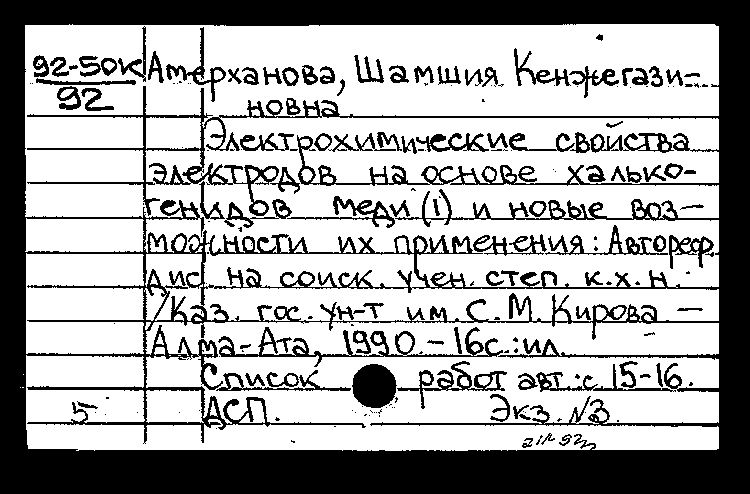 92-50К Амерханова, Шамшия Кенжегази-
92 новна
Электрохимические свойства
электродов на основе халько-
генидов меди (I) и новые воз-
можности их применения: Автореф.
дис. на соиск. учен. степ. к.х.н.
/Каз. гос. ун-т им. С. М. Кирова —
Алма-Ата, 1990. - 16с.: ил.
Список работ авт.: с. 15-16.
5 ДСП. Экз. №3